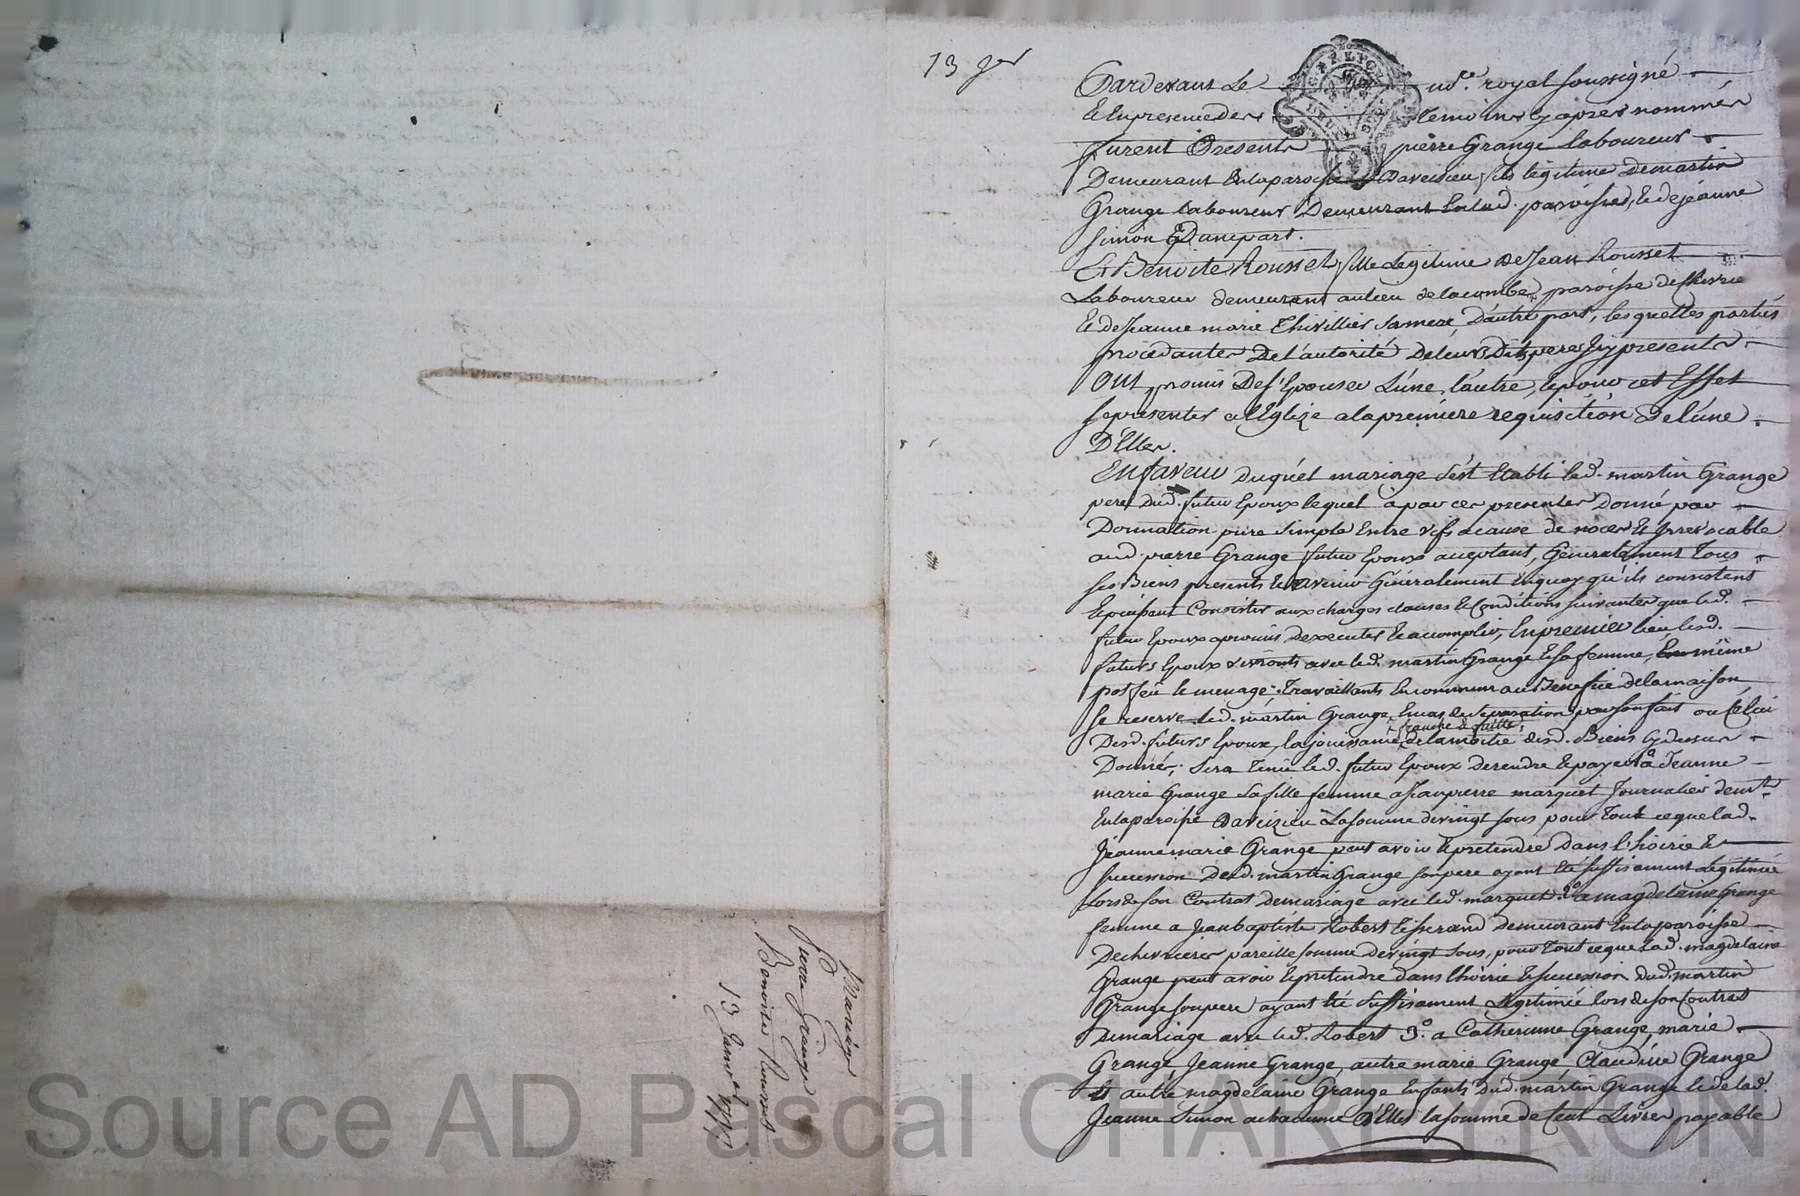 13 Jer
Pardevant Le no.re royal soussigné
et En presence des temoins cy apres nommés
furent Presents pierre Grange Laboureur
Demeurant En la paroisse Daveizieu, fils légitime de martin
Grange laboureur Demeurant En lad. paroisse, et de jéanne
Simon D'une part.
Et Benoite Rousset fille Legitime De Jean Rousset
Laboureur demeurant au lieu de lacombe paroisse de
et de Jeanne marie Thivillier sa mere, D'autre part, les quelles partiés
procedantes De l'autorité De leurs Dits peres icy presents
Ont promis De s'Epouser L'une, l'autre, et pour cet Effet
se presenter a l'Eglize a la premiére requisition De l'une
D'Elles.
En faveur duquél mariage s'est Etabli led. martin Grange
pere Dud. futur Epoux lequel a par ces presentes Donné par
Donnation pure simple Entre vifs a cause de noces et Irrevocable
aud. pierre Grange futur Epoux acceptant, Généralement Tous
ses Biens presents et avenir Généralement En quoy qu'ils consistent
et puissent Consister aux charges clauses et Conditions suivantes que led.
futur Epoux a promis d'executer et accomplir, En premier lieu lesd.
futurs Epoux vivronts avec led. martin Grange et sa femme, En même
pot feu et menage, Travaillants En commun au Benefice de la maison,
se reserve led. martin Grange En cas de separation par son fait ou Célui
Desd. futurs Epoux, la jouissance, franche & quitte, de la moitié desd. Biens Cy dessus
Donnés; sera Tenu led. futur Epoux de rendre et payer 1o a Jeanne
marie Grange sa fille femme a Jean pierre marquet Journalier demt
En la paroisse Daveizieu La somme de vingt sous pour Tout ce que lad.
Jéanne marie Grange peut avoir et pretendre Dans l'hoirie et
succession Dud. martin Grange son pere ayant Eté suffisament Légitimée
Lors de son Contrat De mariage avec led. marquet. 2o a magdelaine Grange
femme a Jean baptiste Robert tisserand demeurant En la paroisse
De chevrieres pareille somme de vingt sous, pour Tout ce que lad. magdelaine
Grange peut avoir et pretendre dans l'hoirie et succession Dud. martin
Grange son pere ayant Eté suffisament Légitimée lors de son Contrat
De mariage avec led. Robert 3.o a Catherinne Grange, marie
Grange, Jeanne Grange, autre marie Grange, Claudine Grange
et autre magdelaine Grange Enfants dud. martin Grange et de lad.
Jeanne Simon a chacune D'Elles la somme de Cent Livres payable
Mariage
de
pierre Grange &
Benoite Rousset
13 Janv.er
Source AD Pascal CHARITRON